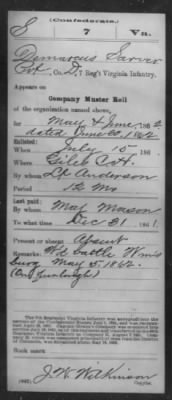 (Confederate.)
S 7 Va.
Demarcus Sarver
Co. D, 7 Reg't Virginia Infantry.
Appears on
Company Muster Roll
of the organization named above,
for May & June, 186 2.
dated June 30, 1862
Enlisted:
When July 15, 186
Where Giles C.H.
By whom Lt Anderson
Period 12 Mo
Last paid:
By whom Maj Mason
To what time Dec 31, 186 1.
Present or absent Absent
Remarks: Wd battle Wms
burg May 5, 1862.
(On furlough)
Book mark:
J. W. Wilkinson
(642) Copyist.